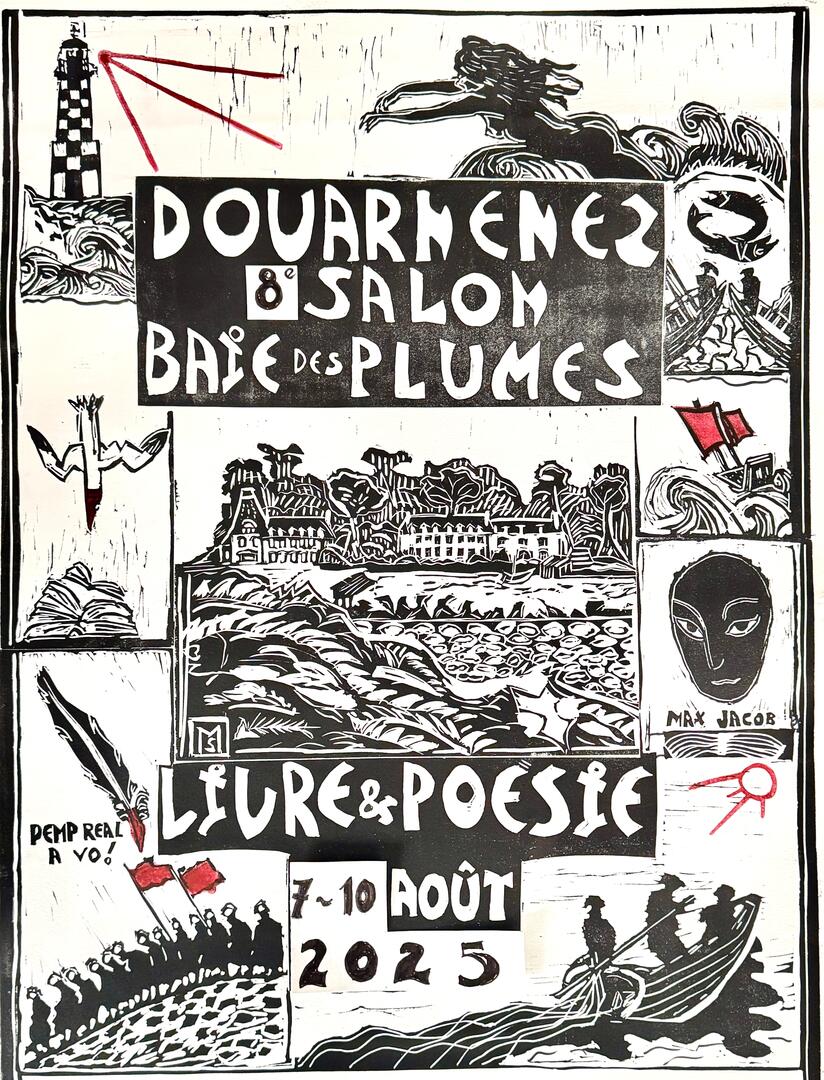 DOUARNENEZ
8e SALON
BAIE DES PLUMES
MAX JACOB
LIVRE & POÉSIE
PEMP REAL
A VO!
7~10 AOÛT
2025